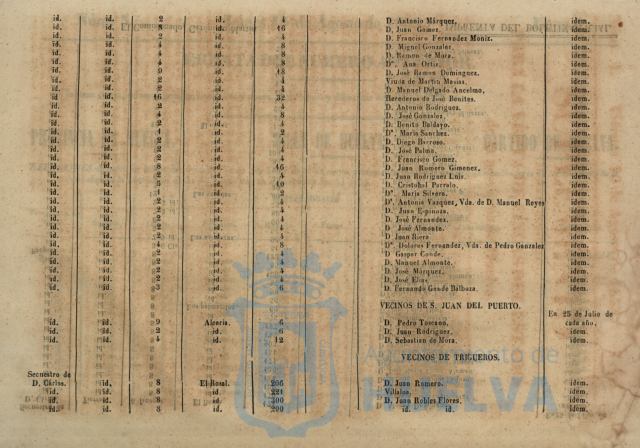 id. id. 2 id. 4 D. Antonio Márquez. idem.
id. id. 8 id. 16 D. Juan Gomez. idem.
id. id. 2 id. 4 D. Francisco Fernandez Moniz. idem.
id. id. 4 id. 8 D. Miguel Gonzalez. idem.
id. id. 4 id. 8 D. Ramon de Mora. idem.
id. id. 4 id. 8 Dª. Ana Ortiz. idem.
id. id. 9 id. 18 D. José Ramos Dominguez. idem.
id. id. 2 id. 4 Viuda de Martin Masias. idem.
id. id. 2 id. 4 D. Manuel Delgado Ancelmo. idem.
id. id. 16 id. 32 Herederos de José Benites. idem.
id. id. 2 id. 4 D. Antonio Rodriguez. idem.
id. id. 4 id. 8 D. José Gonzalez. idem.
id. id. 2 id. 4 D. Benito Baldayo. idem.
id. id. 1 id. 2 Dª. Maria Sanchez. idem.
id. id. 2 id. 4 D. Diego Barroso. idem.
id. id. 2 id. 4 D. José Palma. idem.
id. id. 2 id. 4 D. Francisco Gomez. idem.
id. id. 8 id. 16 D. Juan Romero Gimenez. idem.
id. id. 2 id. 4 D. Juan Rodriguez Luis. idem.
id. id. 5 id. 10 D. Cristobal Parralo. idem.
id. id. 1 id. 2 Dª. Maria Silvera. idem.
id. id. 2 id. 4 Dª. Antonia Vazquez, Vda. de D. Manuel Reyes idem.
id. id. 2 id. 4 D. Juan Espinoza. idem.
id. id. 2 id. 4 D. José Fernandez. idem.
id. id. 2 id. 4 D. José Almonte. idem.
id. id. 2 id. 4 D. Juan Riera idem.
id. id. 4 id. 8 Dª. Dolores Fernandez, Vda. de Pedro Gonzalez idem.
id. id. 2 id. 4 D. Gaspar Conde. idem.
id. id. 2 id. 4 D. Manuel Almonte. idem.
id. id. 2 id. 4 D. José Márquez. idem.
id. id. 2 id. 4 D. José Elias. idem.
id. id. 3 id. 6 D. Fernando Gande Balboza. idem.
VECINOS DE S. JUAN DEL PUERTO.
En 25 de Julio de
id. id. 9 Alcaria. 6 D. Pedro Toscano. cada año.
id. id. 2 id. 6 D. Juan Rodriguez. idem.
id. id. 4 id. 12 D. Sebastian de Mora. idem.
VECINOS DE TRIGUEROS.
Secuestro de
D. Cárlos. id. 8 El Rosal. 206 D. Juan Romero. idem.
id. id. 8 id. 221 Villalba. idem.
id. id. 8 id. 300 D. Juan Robles Flores. idem.
id. id. 8 id. 200 id. id. idem.
Ayuntamiento de
HUELVA